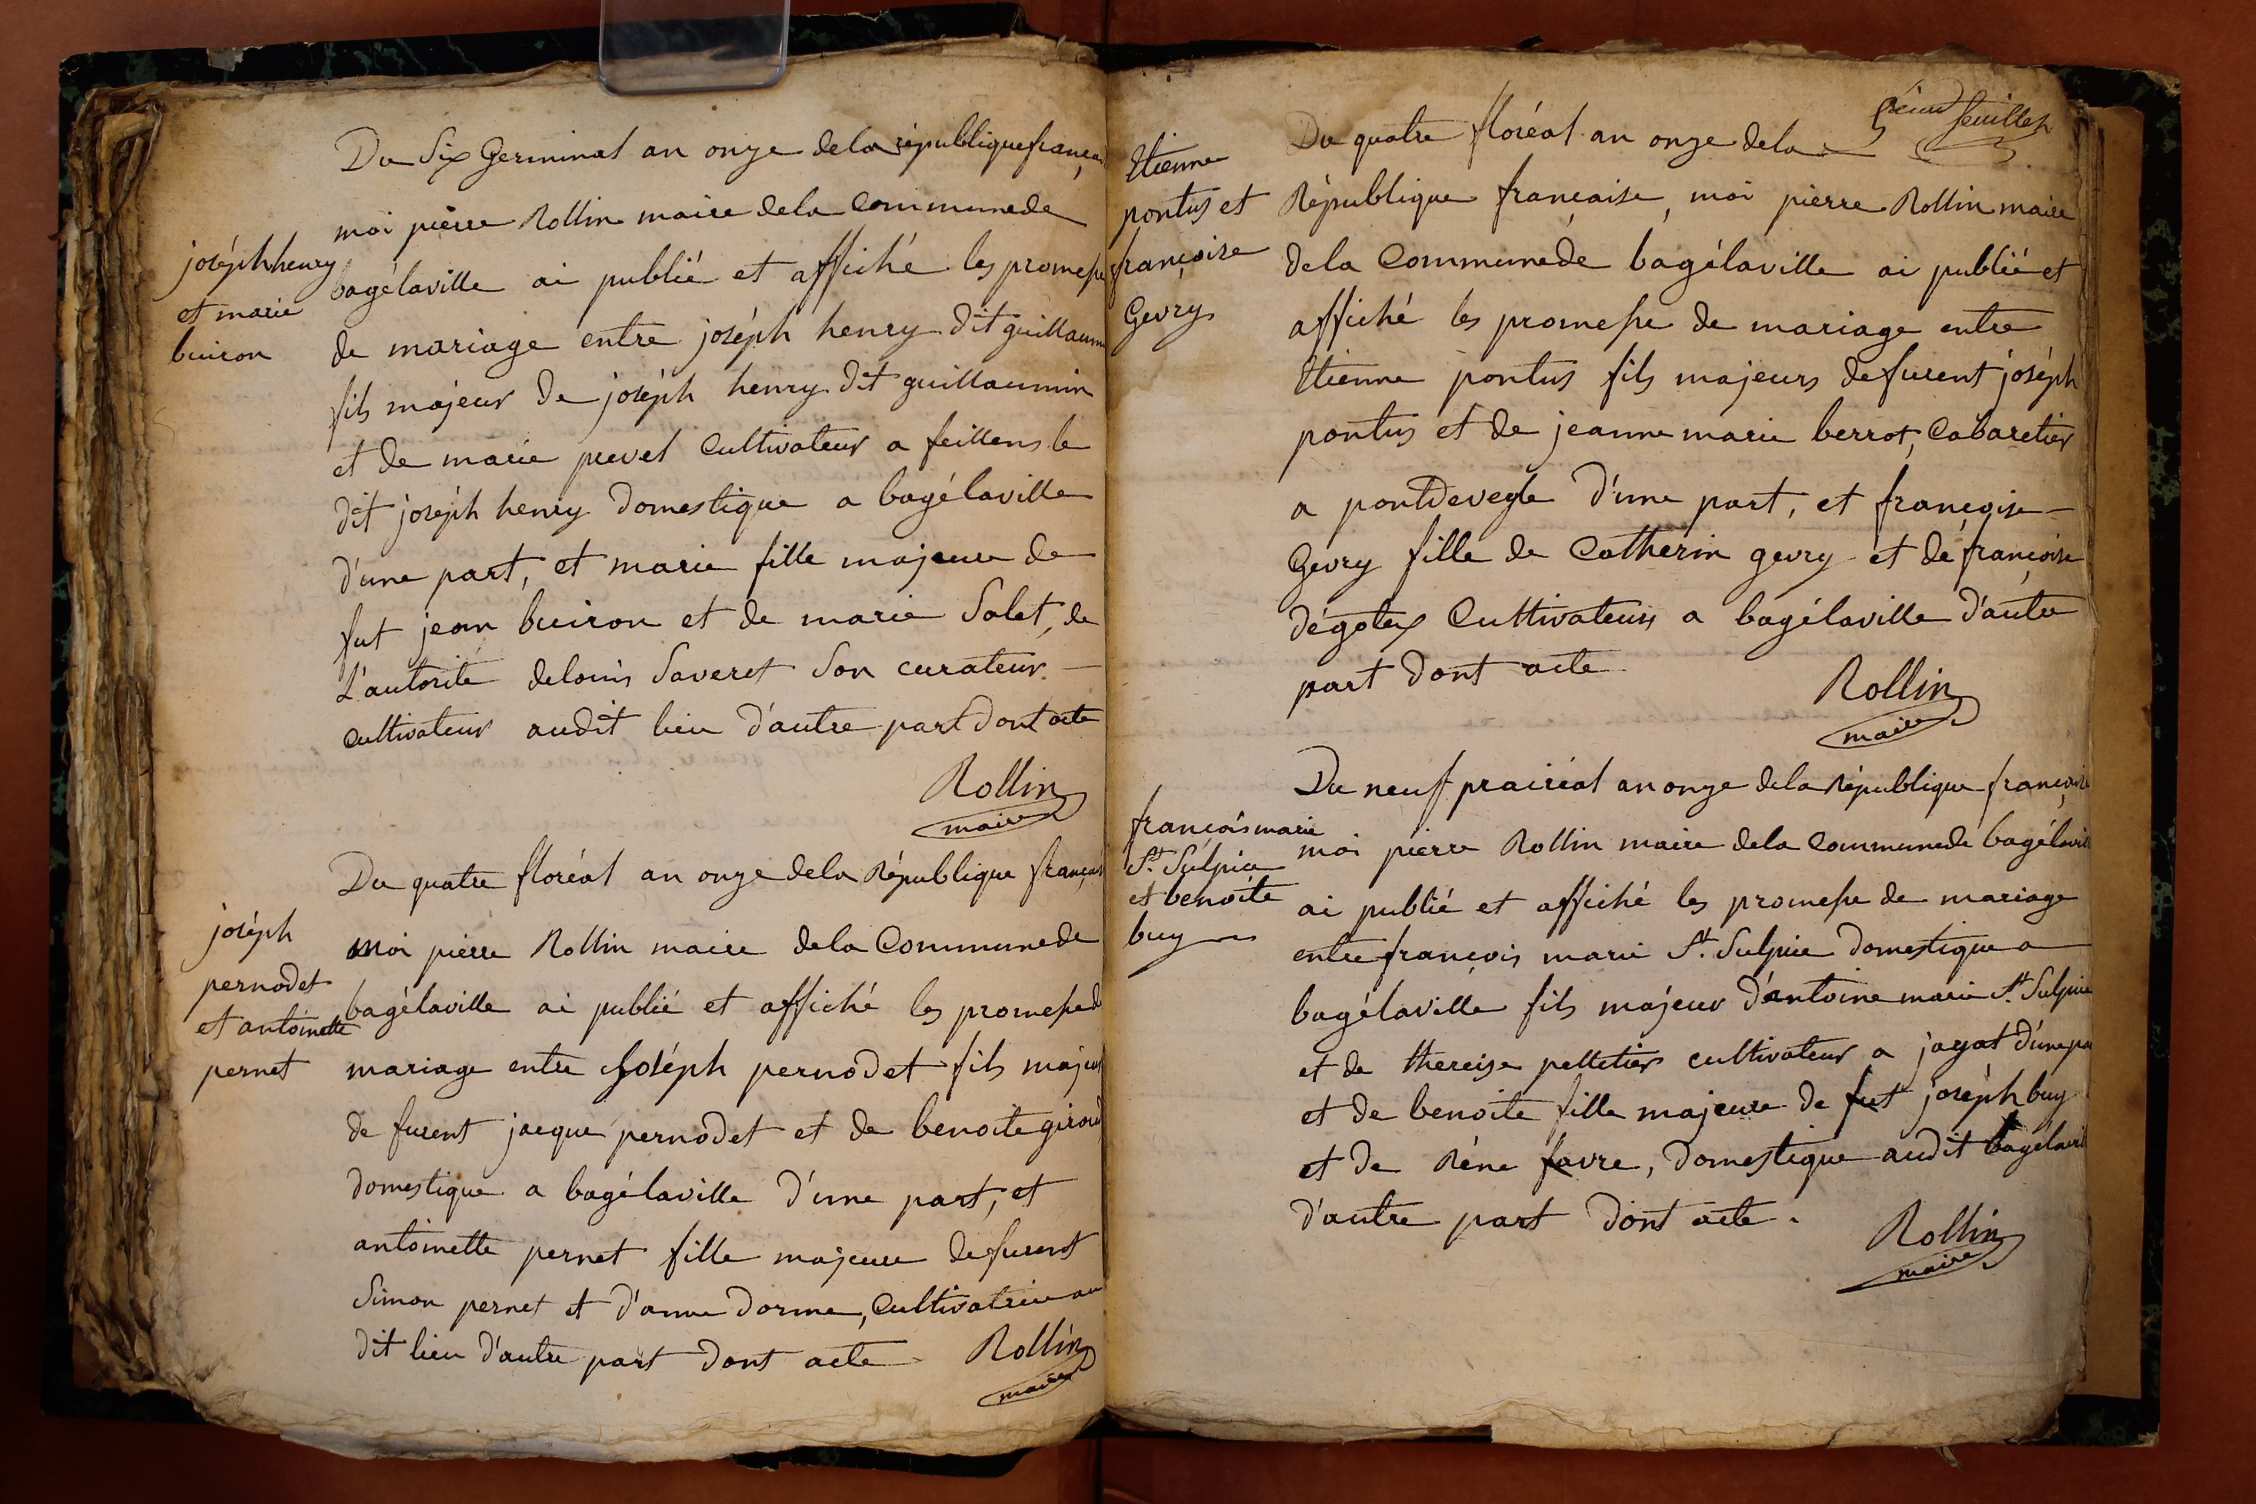 joséph henry
et marie
buiron
Du Six Germinal an onze dela républiquefrançai
moi pierre Rollin maire dela Communede
bagélaville ai publié et affiché les promesse
de mariage entre joséph henry dit guillaum
fils majeur De joséph henry dit guillaumin
et de marie prevel Cultivateur a feillens le
dit joséph henry domestique a bagélaville
d'une part, et marie fille majeure de
fut jean buiron et de marie Salet, de
L'autorité delouis Saveret Son curateur
Cultivateur audit lieu d'autre part Dont acte
Rollin
maire
joséph
pernodet
et antoinette
pernet
Du quatre floréal an onze dela République françai
moi pierre Rollin maire dela Communede
bagélaville ai publié et affiché les promessede
mariage entre Joséph pernodet fils majeur
de furent jacque pernodet et de benoite giroud
domestique a bagélaville d'une part, et
antoinette pernet fille majeure defurent
Simon pernet et d'anne Dorme, Cultivatrice au
dit lieu d'autre part Dont acte
Rollin
maire
feuillet
Etienne
pontus et
françoise
Gevry
Du quatre floréal an onze dela
République françaïse, moi pierre Rollin maire
dela Communede bagélaville ai publié et
affiché les promesse de mariage entre
Etienne pontus fils majeurs defurent joséph
pontus et de jeanne marie berrot, Cabaretier
a pontdevegle d'une part, et françoise
Gevry fille de Catherin gevry et de françoise
dégotex Cultivateurs a bagélaville d'autre
part Dont acte
Rollin
maire
françois marie
St. Sulpice
et benoite
buy
Du neuf prairéal an onze dela République françaïse
moi pierre Rollin maire dela Communede bagélavill
ai publié et affiché les promesse de mariage
entre françois marie St. Sulpice domestique a
bagélaville fils majeur d'antoine marie St. Sulpice
et de thereise pelletier cultivateur a jayat d'une pa
et de benoite fille majeure de fut joséph buy
et de Réne favre, domestique audit bagélavil
d'autre part Dont acte.
Rollin
maire